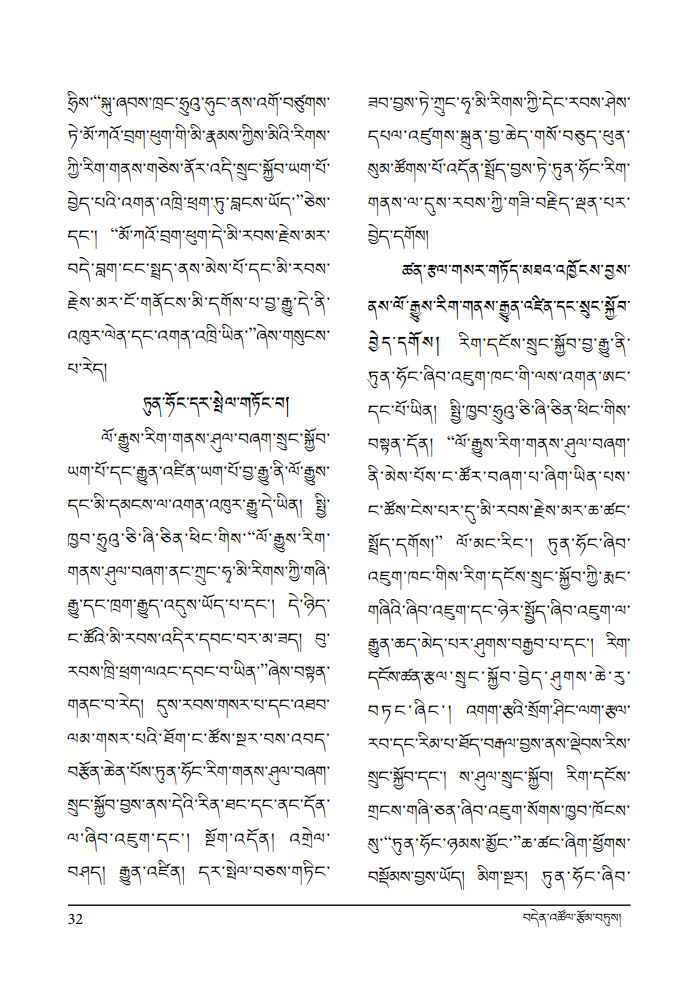 ཉིས་“སྐུ་ཞབས་ཁྲང་ཧྲུའུ་ཧུང་ནས་འགོ་བཙུགས་
ཏེ་མོ་ཀའོ་བྲག་ཕུག་གི་མི་རྣམས་ཀྱིས་མིའི་རིགས་
ཀྱི་རིག་གནས་གཅེས་ནོར་འདི་སྲུང་སྐྱོབ་ཡག་པོ་
བྱེད་པའི་འགན་འཁྲི་ཕྲག་ཏུ་བླངས་ཡོད་”ཅེས་
དང་། “མོ་ཀའོ་བྲག་ཕུག་དེ་མི་རབས་རྗེས་མར་
བདེ་བླག་ངང་སྤྲད་ནས་མེས་པོ་དང་མི་རབས་
རྗེས་མར་ངོ་གནོངས་མི་དགོས་པ་བྱ་རྒྱུ་དེ་ནི་
འཁུར་ལེན་དང་འགན་འཁྲི་ཡིན་”ཞེས་གསུངས་
པ་རེད།
ཏུན་ཧོང་དར་སྤེལ་གཏོང་བ།
ལོ་རྒྱུས་རིག་གནས་ཤུལ་བཞག་སྲུང་སྐྱོབ་
ཡག་པོ་དང་རྒྱུན་འཛིན་ཡག་པོ་བྱ་རྒྱུ་ནི་ལོ་རྒྱུས་
དང་མི་དམངས་ལ་འགན་འཁུར་རྒྱུ་དེ་ཡིན། སྤྱི་
ཁྱབ་ཧྲུའུ་ཅི་ཞི་ཅིན་ཕིང་གིས་“ལོ་རྒྱུས་རིག་
གནས་ཤུལ་བཞག་ནང་ཀྲུང་ཧྭ་མི་རིགས་ཀྱི་གཞི་
རྒྱུ་དང་ཁྲག་རྒྱུད་འདུས་ཡོད་པ་དང་། དེ་ཉིད་
ང་ཚོའི་མི་རབས་འདིར་དབང་བར་མ་ཟད། བུ་
རབས་ཁྲི་ཕྲག་ལའང་དབང་བ་ཡིན་”ཞེས་བསྟན་
གནང་བ་རེད། དུས་རབས་གསར་པ་དང་འཐབ་
ལམ་གསར་པའི་ཐོག་ང་ཚོས་སྔར་བས་འབད་
བརྩོན་ཆེན་པོས་ཏུན་ཧོང་རིག་གནས་ཤུལ་བཞག་
སྲུང་སྐྱོབ་བྱས་ནས་དེའི་རིན་ཐང་དང་ནང་དོན་
ལ་ཞིབ་འཇུག་དང་། སྔོག་འདོན། འགྲེལ་
བཤད། རྒྱུན་འཛིན། དར་སྤེལ་བཅས་གཏིང་
ཟབ་བྱས་ཏེ་ཀྲུང་ཧྭ་མི་རིགས་ཀྱི་དེང་རབས་ཤེས་
དཔལ་འཛུགས་སྐྲུན་བྱ་ཆེད་གསོ་བཅུད་ཕུན་
སུམ་ཚོགས་པོ་འདོན་སྤྲོད་བྱས་ཏེ་ཏུན་ཧོང་རིག་
གནས་ལ་དུས་རབས་ཀྱི་གཟི་བརྗིད་ལྡན་པར་
བྱེད་དགོས།
ཚན་རྩལ་གསར་གཏོད་མཐའ་འཁྱོངས་བྱས་
ནས་ལོ་རྒྱུས་རིག་གནས་རྒྱུན་འཛིན་དང་སྲུང་སྐྱོབ་
བྱེད་དགོས། རིག་དངོས་སྲུང་སྐྱོབ་བྱ་རྒྱུ་ནི་
ཏུན་ཧོང་ཞིབ་འཇུག་ཁང་གི་ལས་འགན་ཨང་
དང་པོ་ཡིན། སྤྱི་ཁྱབ་ཧྲུའུ་ཅི་ཞི་ཅིན་ཕིང་གིས་
བསྟན་དོན། “ལོ་རྒྱུས་རིག་གནས་ཤུལ་བཞག་
ནི་མེས་པོས་ང་ཚོར་བཞག་པ་ཞིག་ཡིན་པས་
ང་ཚོས་ངེས་པར་དུ་མི་རབས་རྗེས་མར་ཆ་ཚང་
སྤྲོད་དགོས།” ལོ་མང་རིང་། ཏུན་ཧོང་ཞིབ་
འཇུག་ཁང་གིས་རིག་དངོས་སྲུང་སྐྱོབ་ཀྱི་རྨང་
གཞིའི་ཞིབ་འཇུག་དང་ཉེར་སྤྱོད་ཞིབ་འཇུག་ལ་
རྒྱུན་ཆད་མེད་པར་ཤུགས་བརྒྱབ་པ་དང་། རིག་
དངོས་ཚན་རྩལ་སྲུང་སྐྱོབ་བྱེད་ཤུགས་ཆེ་རུ་
བཏང་ཞིང་། འགག་རྩའི་སྲོག་ཤིང་ལག་རྩལ་
རབ་དང་རིམ་པ་ཐོད་བརྒལ་བྱས་ནས་ལྡེབས་རིས་
སྲུང་སྐྱོབ་དང་། ས་ཤུལ་སྲུང་སྐྱོབ། རིག་དངོས་
གྲངས་གཞི་ཅན་ཞིབ་འཇུག་སོགས་ཁྱབ་ཁོངས་
སུ་“ཏུན་ཧོང་ཉམས་མྱོང་”ཆ་ཚང་ཞིག་ཕྱོགས་
བསྡོམས་བྱས་ཡོད། མིག་སྔར། ཏུན་ཧོང་ཞིབ་
32
བདེན་འཚོལ་རྩོམ་བཏུས།